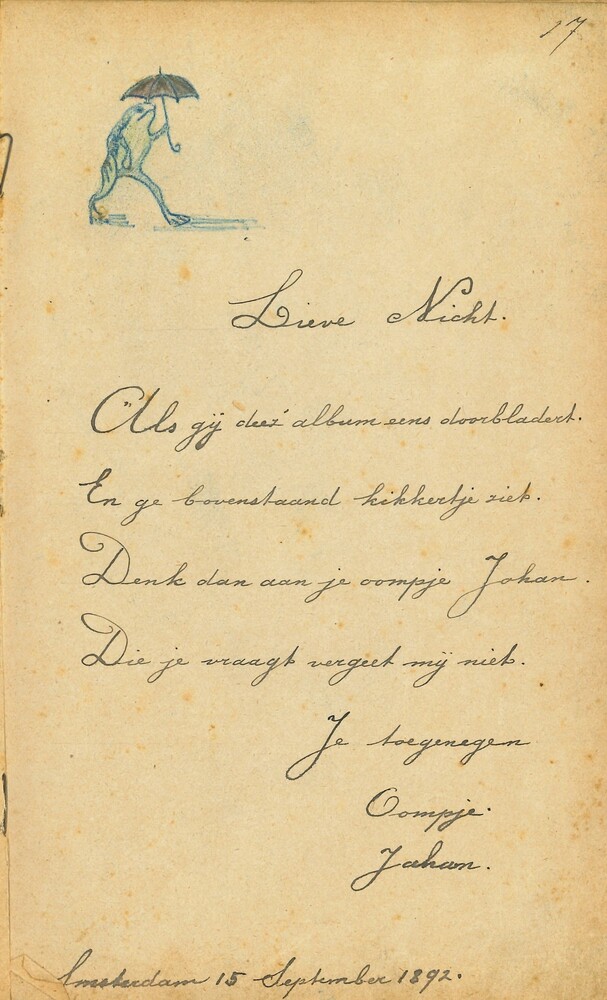 17
Lieve Nicht.
Als gij deez' album eens doorbladert.
En ge bovenstaand kikkertje ziet.
Denk dan aan je oompje Johan.
Die je vraagt vergeet mij niet.
Je toegenegen
Oompje.
Johan.
Amsterdam 15 September 1892.